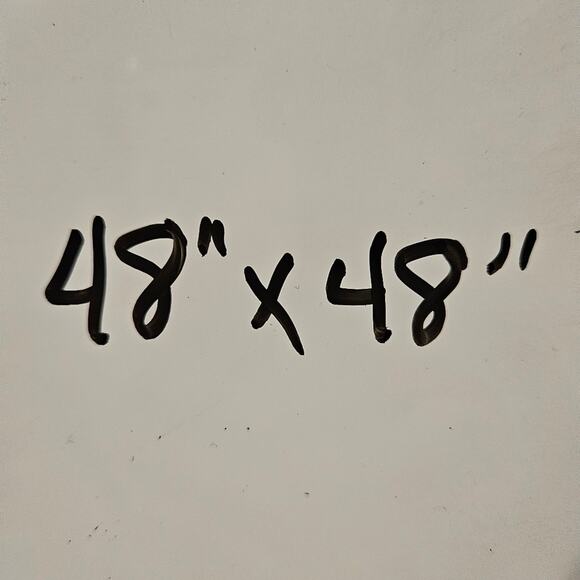 48" x 48"